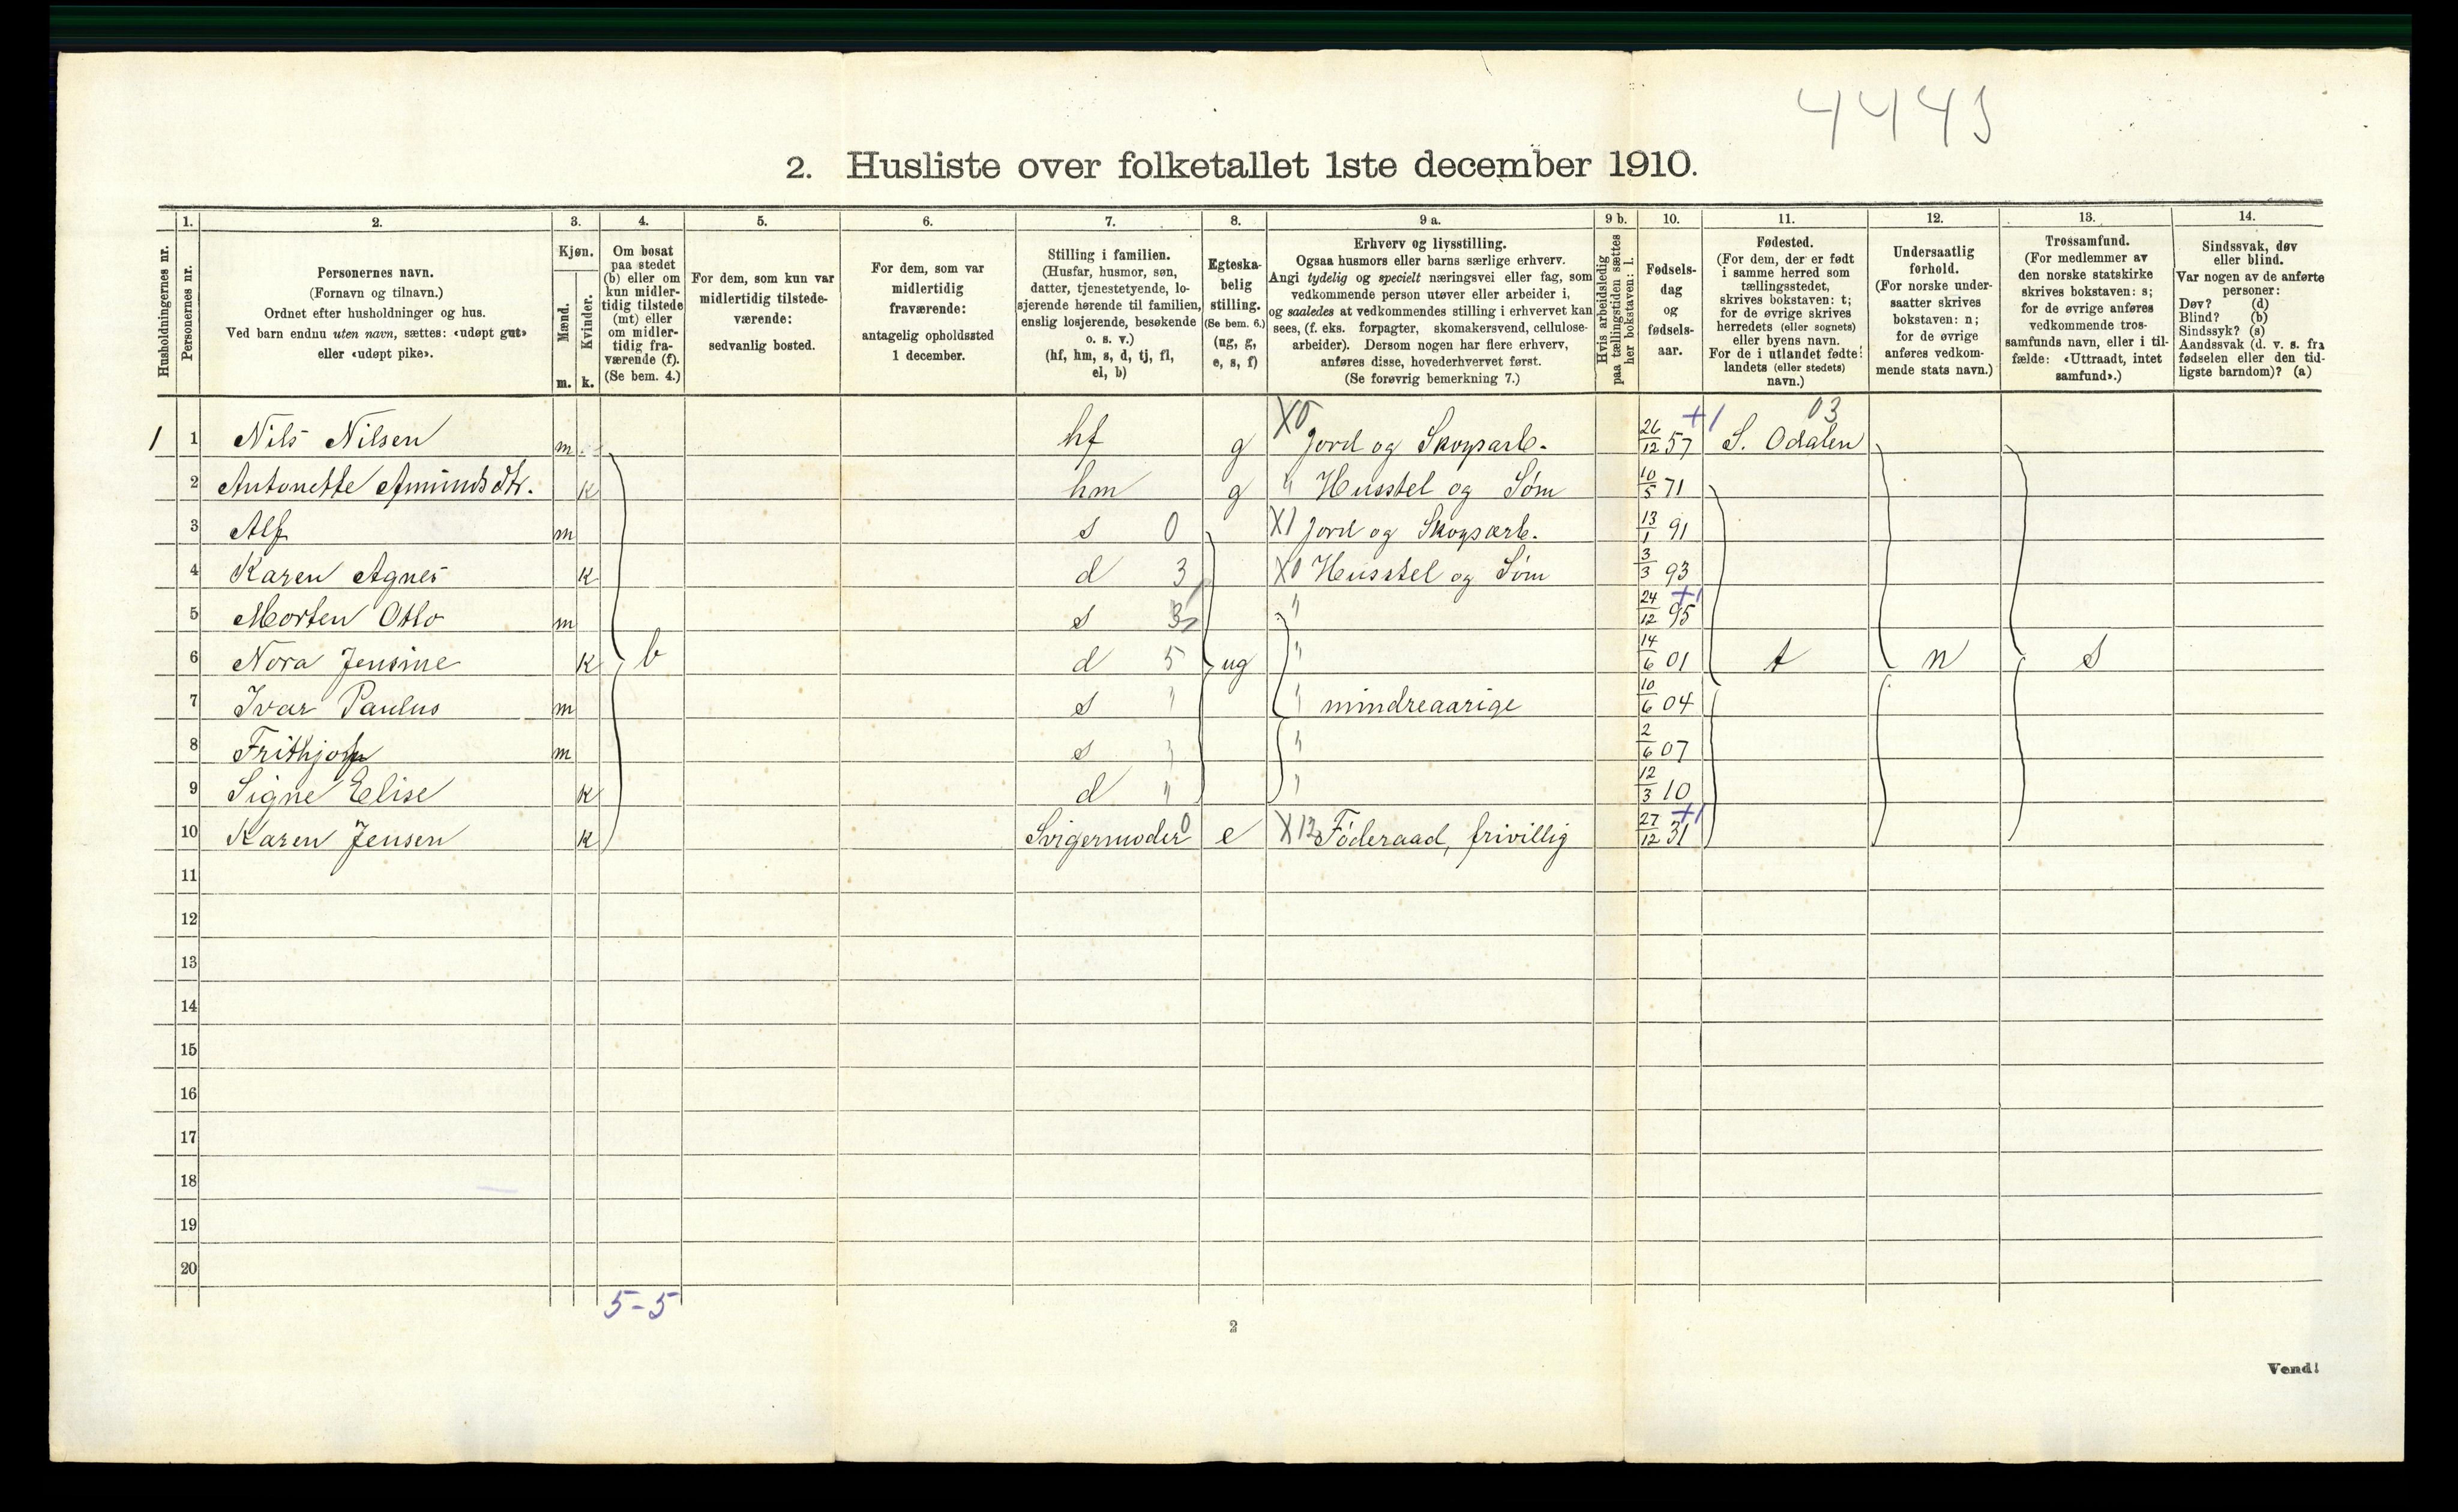 4445
2. Husliste over folketallet 1ste december 1910.
Husholdningernes nr.
1.
Personernes nr.
2.
Personernes navn.
(Fornavn og tilnavn.)
Ordnet efter husholdninger og hus.
Ved barn endnu uten navn, sættes: «udøpt gut»
eller «udøpt pike».
3.
Kjøn.
Mænd.
Kvinder.
m. k.
4.
Om bosat
paa stedet
(b) eller om
kun midler-
tidig tilstede
(mt) eller
om midler-
tidig fra-
værende (f).
(Se bem. 4.)
5.
For dem, som kun var
midlertidig tilstede-
værende:
sedvanlig bosted.
6.
For dem, som var
midlertidig
fraværende:
antagelig opholdssted
1 december.
7.
Stilling i familien.
(Husfar, husmor, søn,
datter, tjenestetyende, lo-
sjerende hørende til familien,
enslig losjerende, besøkende
o. s. v.)
(hf, hm, s, d, tj, fl,
el, b)
8.
Egteska-
belig
stilling.
(Se bem. 6.)
(ug, g,
e, s, f)
9 a.
Erhverv og livsstilling.
Ogsaa husmors eller barns særlige erhverv.
Angi tydelig og specielt næringsvei eller fag, som
vedkommende person utøver eller arbeider i,
og saaledes at vedkommendes stilling i erhvervet kan
sees, (f. eks. forpagter, skomakersvend, cellulose-
arbeider). Dersom nogen har flere erhverv,
anføres disse, hovederhvervet først.
(Se forøvrig bemerkning 7.)
9 b.
Hvis arbeidsledig
paa tællingstiden sættes
her bokstaven: l.
10.
Fødsels-
dag
og
fødsels-
aar.
11.
Fødested.
(For dem, der er født
i samme herred som
tællingsstedet,
skrives bokstaven: t;
for de øvrige skrives
herredets (eller sognets)
eller byens navn.
For de i utlandet fødte:
landets (eller stedets)
navn.)
12.
Undersaatlig
forhold.
(For norske under-
saatter skrives
bokstaven: n;
for de øvrige
anføres vedkom-
mende stats navn.)
13.
Trossamfund.
(For medlemmer av
den norske statskirke
skrives bokstaven: s;
for de øvrige anføres
vedkommende tros-
samfunds navn, eller i til-
fælde: «Uttraadt, intet
samfund».)
14.
Sindssvak, døv
eller blind.
Var nogen av de anførte
personer:
Døv? (d)
Blind? (b)
Sindssyk? (s)
Aandssvak (d. v. s. fra
fødselen eller den tid-
ligste barndom)? (a)
1 1 Nils Nilsen m hf g X0 Jord og Skogsarb. 26/12 57 +1 S. Odalen 03
2 Antonette Amundsdtr. k hm g " Husstel og Søm 10/5 71
3 Alf m s 0 X1 Jord og Skogsarb. 13/1 91
4 Karen Agnes k d 3 X0 Husstel og Søm 3/3 93
5 Morten Otto m s 3 " 24/12 95 +1
6 Nora Jensine k b d 5 ug " 14/6 01 t n s
7 Ivar Paulus m s " " mindreaarige 10/6 04
8 Frithjof m s " " 2/6 07
9 Signe Elise k d " " 12/3 10
10 Karen Jensen k Svigermoder 0 e X12 Föderaad, frivillig 27/12 31 +1
11
12
13
14
15
16
17
18
19
20
5-5
2
Vend!